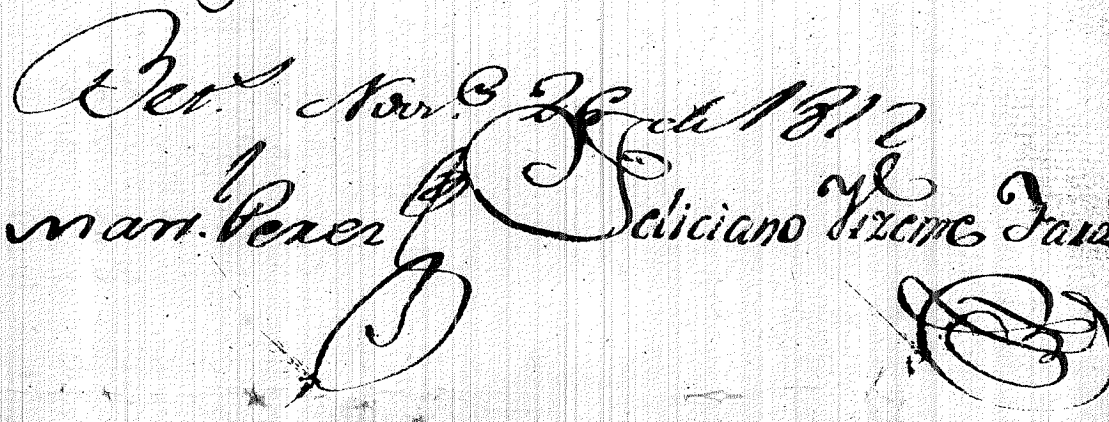 Bex.r Novr.e 26 de 1812
Man.l Perez Feliciano Vizente Faxa